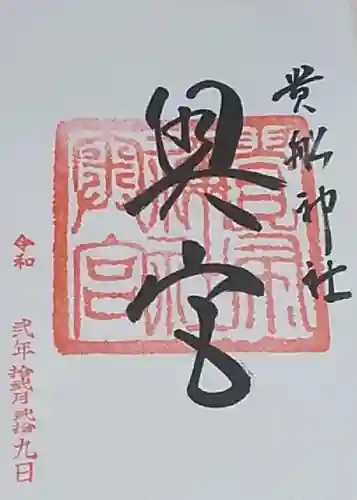 貴船神社
奥宮
令和 弐年 拾弐月 弐拾九日